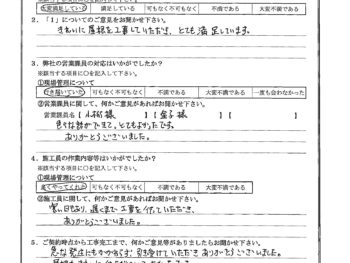 大変満足している 満足している 可もなく不可もなく 不満である 大変不満である
2．「1」についてのご意見をお聞かせ下さい。
きれいに屋根を工事していただき、とても満足しています。
3．弊社の営業課員の対応はいかがでしたか？
※該当する項目に○を記入して下さい。
①現場管理について
行き届いていた 可もなく不可もなく 不満である 大変不満である 一度も会わなかった
②営業課員に関して、何かご意見があればお聞かせ下さい。
営業課員名【 小松様 】【 金子様 】【 】
色々な話ができて、とてもよかったです。
ありがとうございました。
4．施工員の作業内容等はいかがでしたか？
※該当する項目に○を記入して下さい。
①現場管理について
良くやってくれた 可もなく不可もなく 不満である 大変不満である
②施工員に関して、何かご意見があればお聞かせ下さい。
暑い日もあり、遅くまで工事を行っていただき、
ありがとうございました。
5．ご契約時点から工事完工まで、何かご意見等がありましたらお聞かせ下さい。
急な発注にもかかわらず、引き受けていただきありがとうございました。